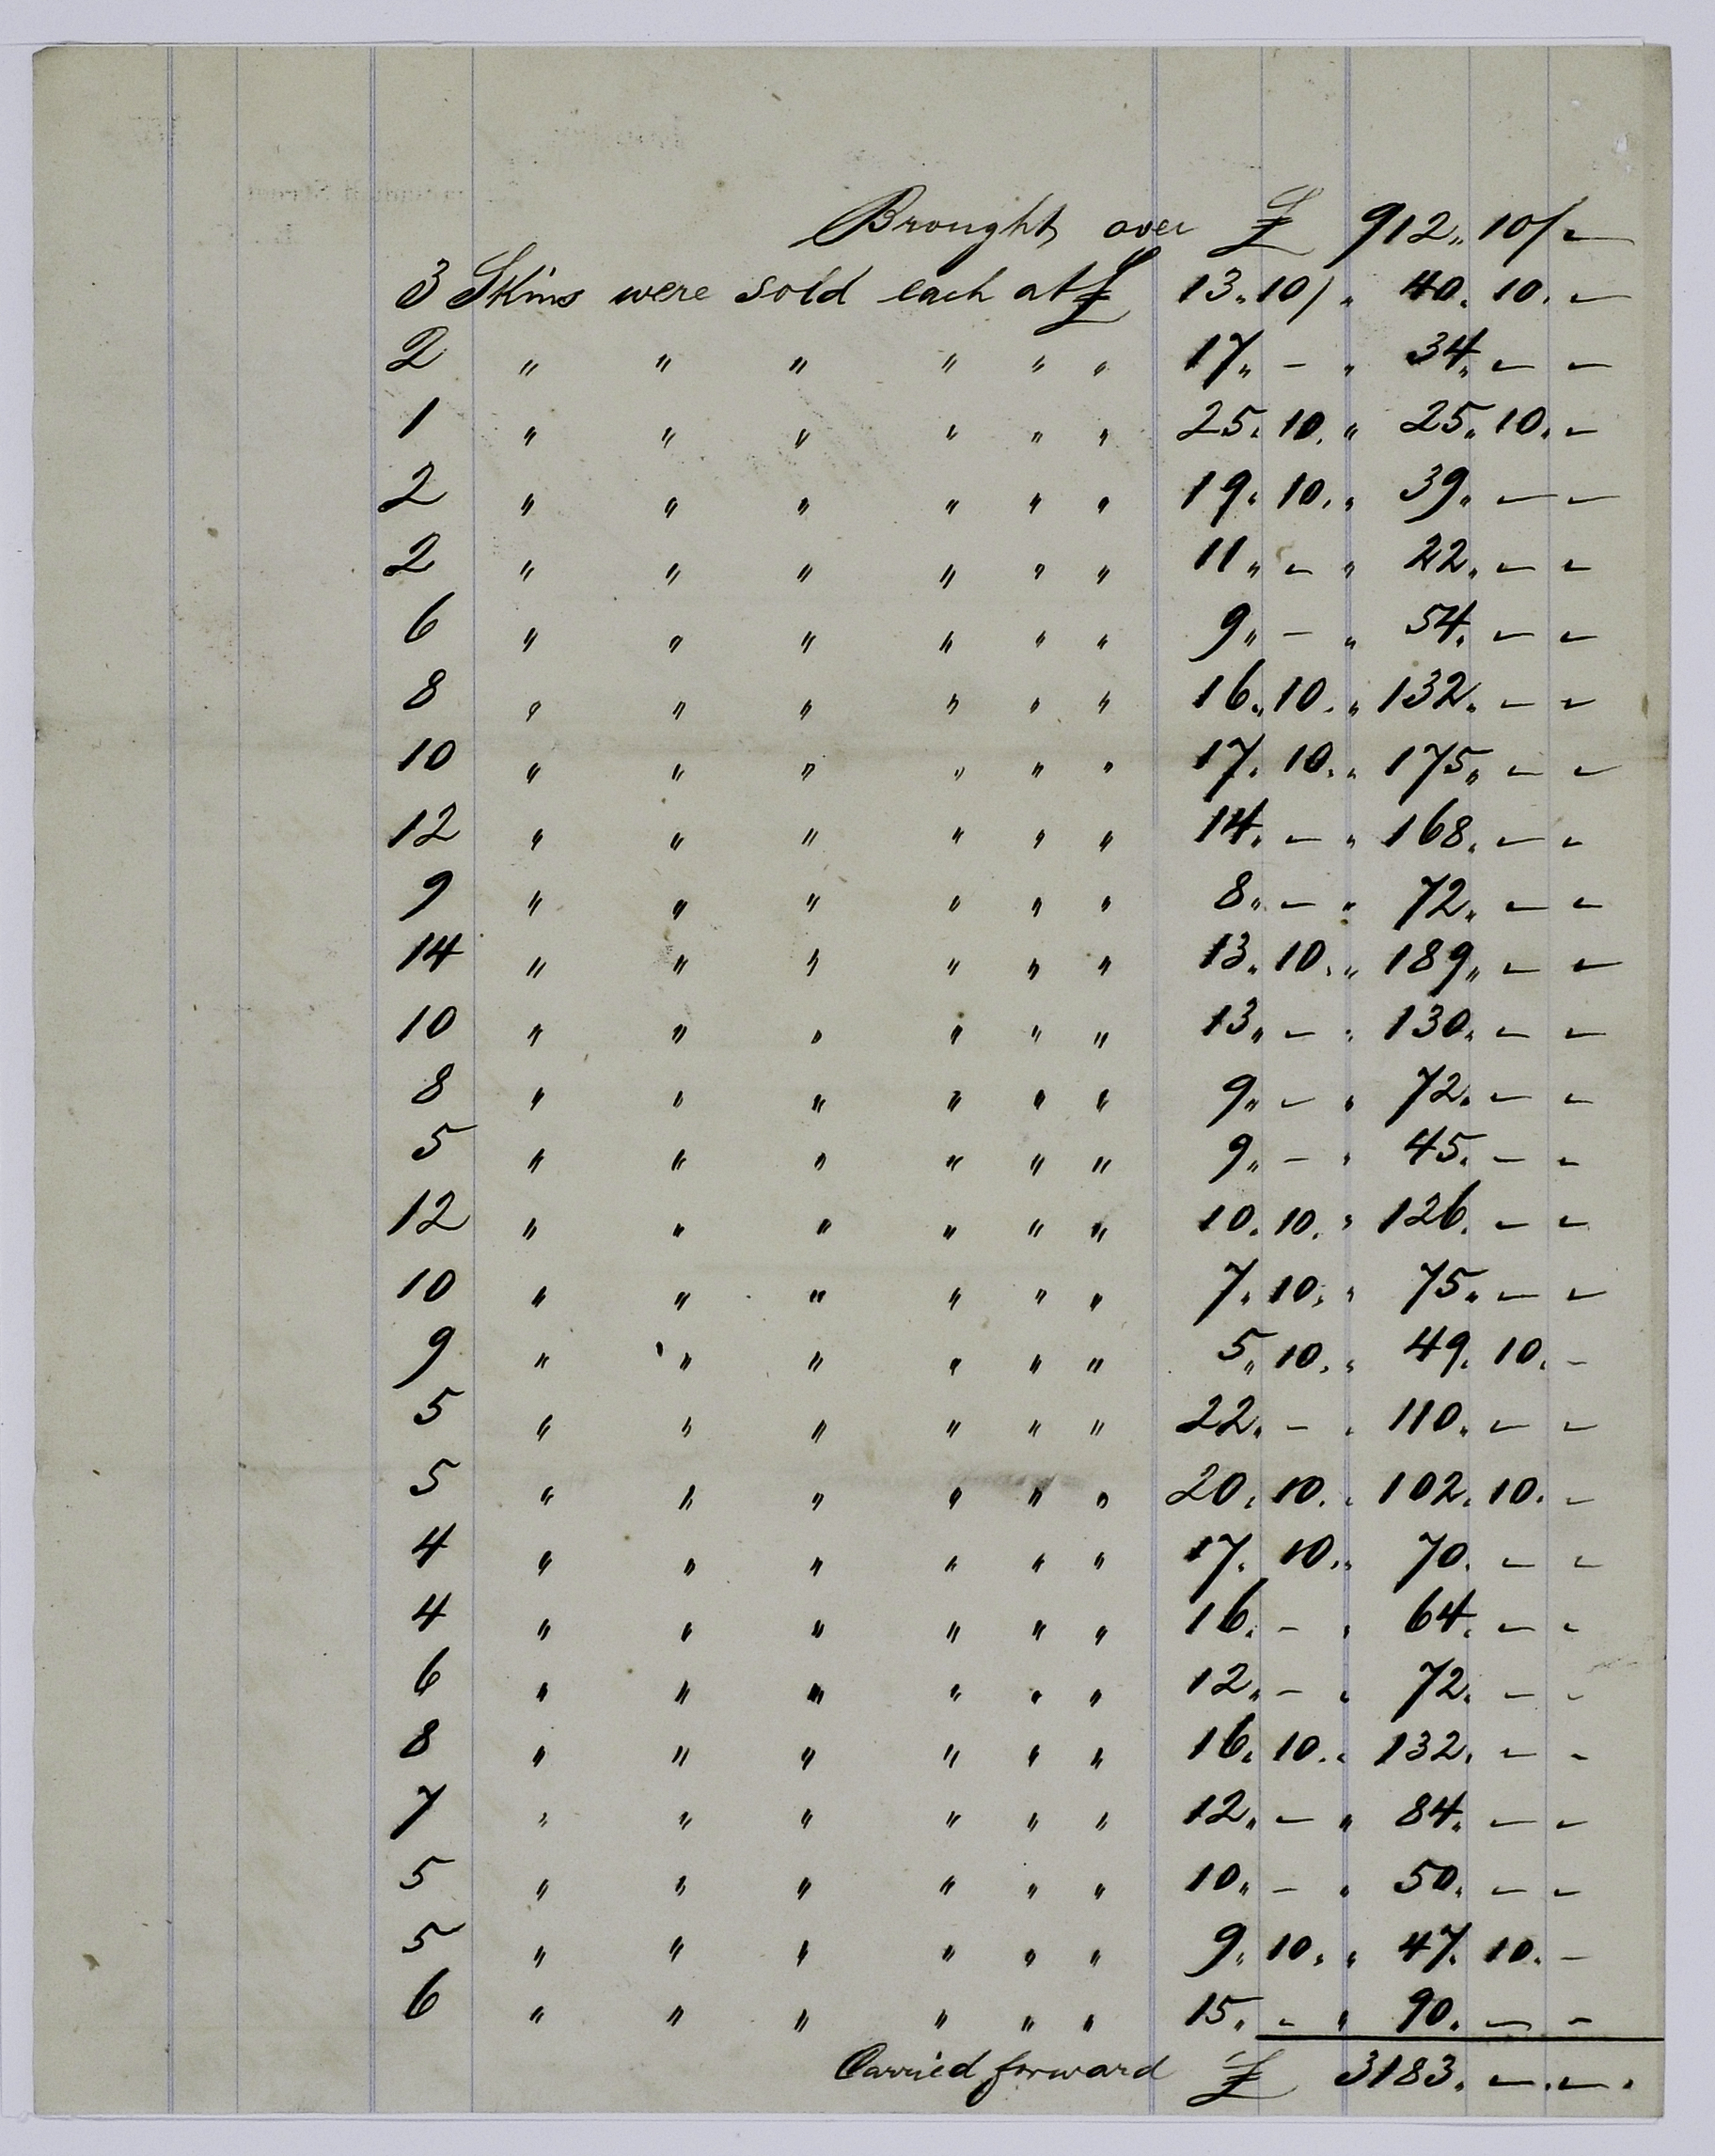 Brought over £ 912 " 10/-
3 Skins were sold each at £ 13 " 10/ " 40 " 10 " -
2 " " " " " " 17 " - " 34 " - -
1 " " " " " " 25 " 10 " " 25 " 10 " -
2 " " " " " " 19 " 10 " " 39 " - -
2 " " " " " " 11 " - " 22 " - -
6 " " " " " " 9 " - " 54 " - -
8 " " " " " " 16 " 10 " " 132 " - -
10 " " " " " " 17 " 10 " " 175 " - -
12 " " " " " " 14 " - " 168 " - -
9 " " " " " " 8 " - " 72 " - -
14 " " " " " " 13 " 10 " " 189 " - -
10 " " " " " " 13 " - " 130 " - -
8 " " " " " " 9 " - " 72 " - -
5 " " " " " " 9 " - " 45 " - -
12 " " " " " " 10 " 10 " " 126 " - -
10 " " " " " " 7 " 10 " " 75 " - -
9 " " " " " " 5 " 10 " " 49 " 10 " -
5 " " " " " " 22 " - " 110 " - -
5 " " " " " " 20 " 10 " " 102 " 10 " -
4 " " " " " " 17 " 10 " " 70 " - -
4 " " " " " " 16 " - " 64 " - -
6 " " " " " " 12 " - " 72 " - -
8 " " " " " " 16 " 10 " " 132 " - -
7 " " " " " " 12 " - " 84 " - -
5 " " " " " " 10 " - " 50 " - -
5 " " " " " " 9 " 10 " " 47 " 10 " -
6 " " " " " " 15 " - " 90 " - -
Carried forward £ 3183 " - " - "